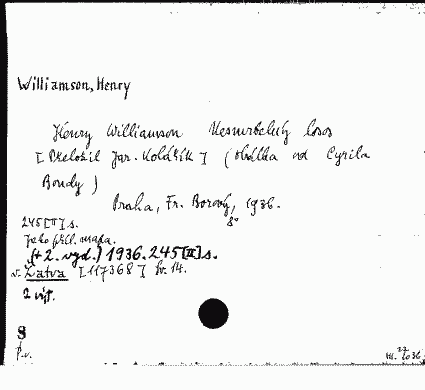 Williamson, Henry
Henry Williamson Nesmrtelný losos
[Přeložil Jar. Kolářík] (Obálka od Cyrila
Boudy)
Praha, Fr. Borový, 1936.
8°
245 [II] s.
Jako příl. mapa.
(+2. vyd.) 1936. 245 [II] s.
v. Žatva [117368] sv. 14.
2 výt.
S